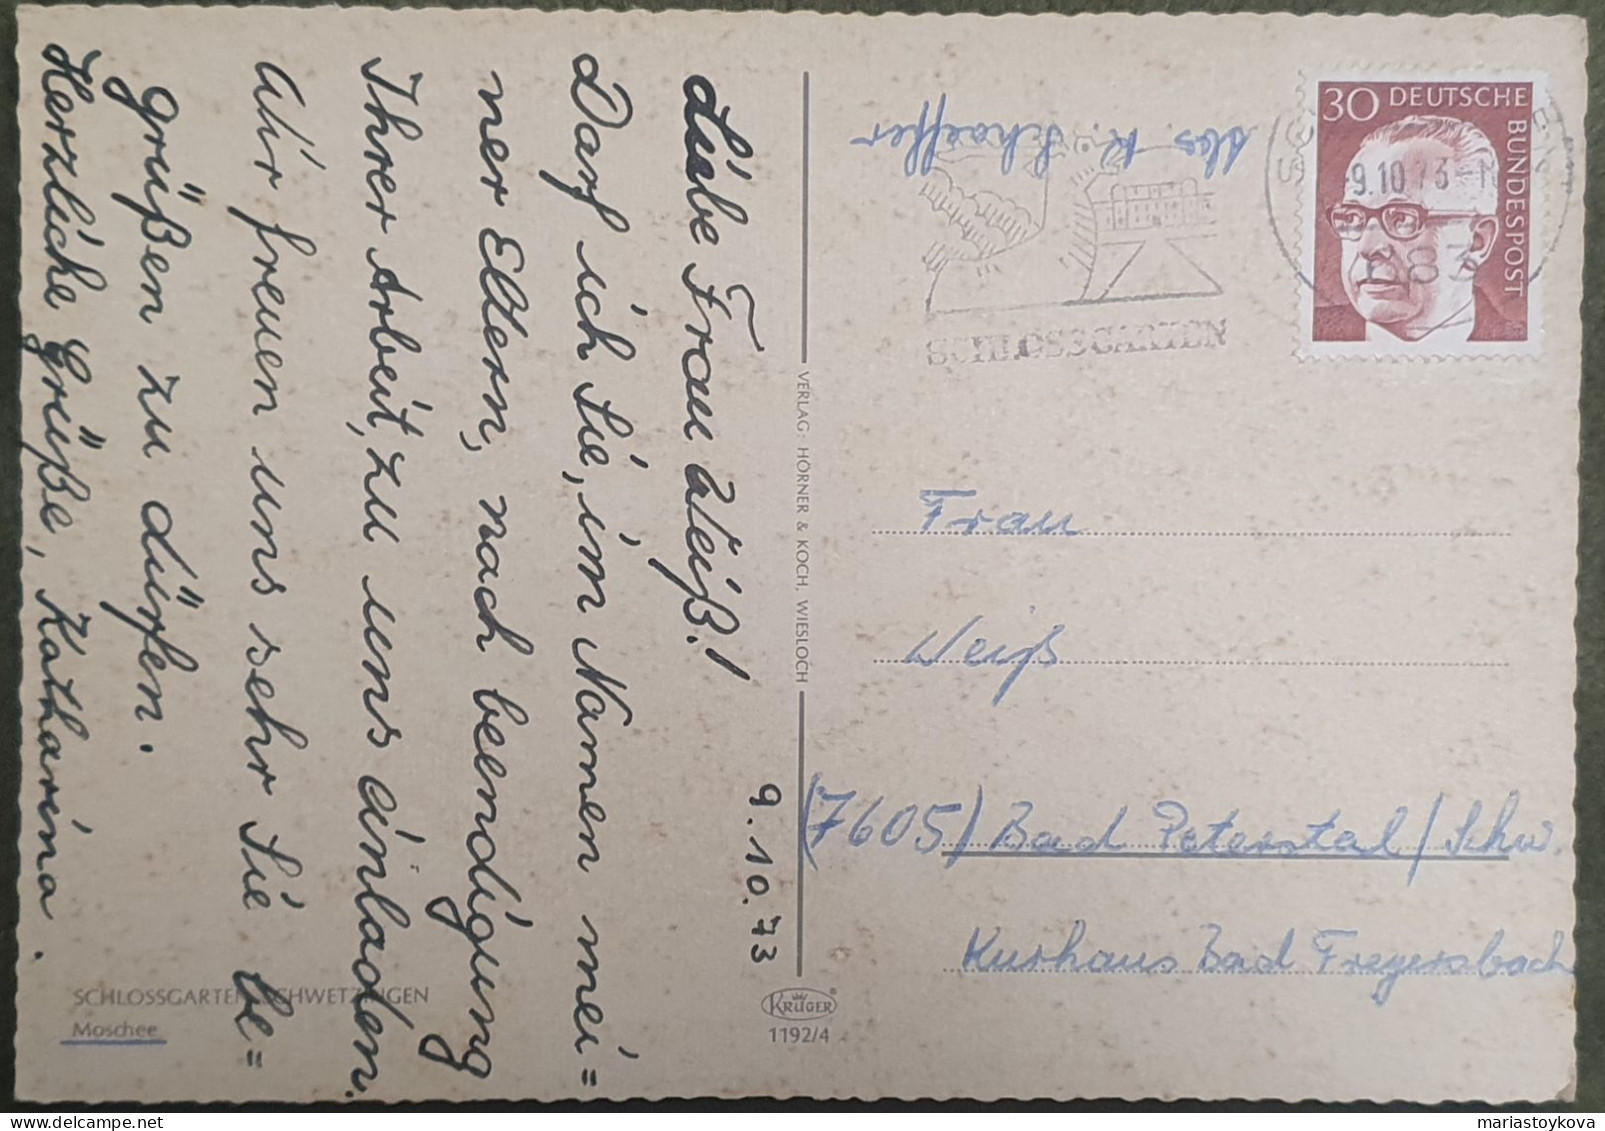 9.10.73
Liebe Frau Weiß!
Darf ich Sie, im Namen mei=
ner Eltern, nach beendigung
Ihrer Arbeit, zu uns einladen.
Wir freuen uns sehr Sie be=
grüßen zu dürfen.
Herzliche Grüße, Katharina.
SCHLOSSGARTEN SCHWETZINGEN
Moschee
VERLAG: HÖRNER & KOCH, WIESLOCH
KRÜGER
1192/4
Abs. K. Schaeffer
SCHLOSSGARTEN
-9.10.73-
683
30 DEUTSCHE
BUNDESPOST
Frau
Weiß
(7605) Bad Peterstal/Schw.
Kurhaus Bad Freyersbach
mariastoykova